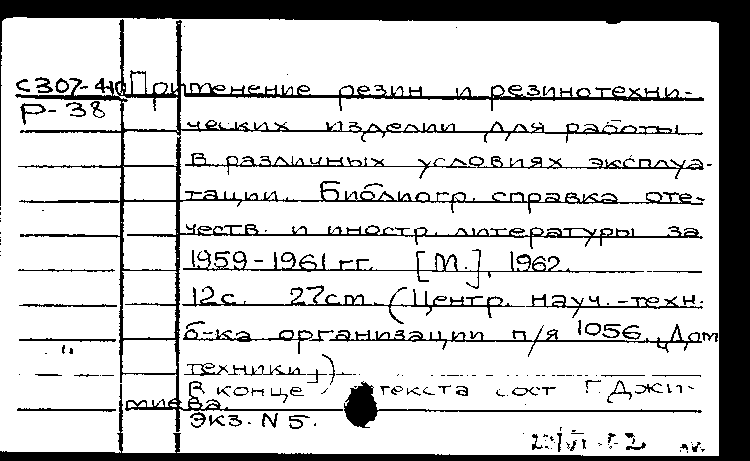 С307-410 Применение резин и резинотехни-
Р-38
ческих изделии для работы
в различных условиях эксплуа-
тации. Библиогр. справка оте-
честв. и иностр. литературы за
1959-1961 гг. [М.], 1962.
12с. 27cm. (Центр. науч.-техн.
б-ка организации п/я 1056 „Дом
техники")
В конце текста сост Г. Джи-
миева.
Экз. N 5.